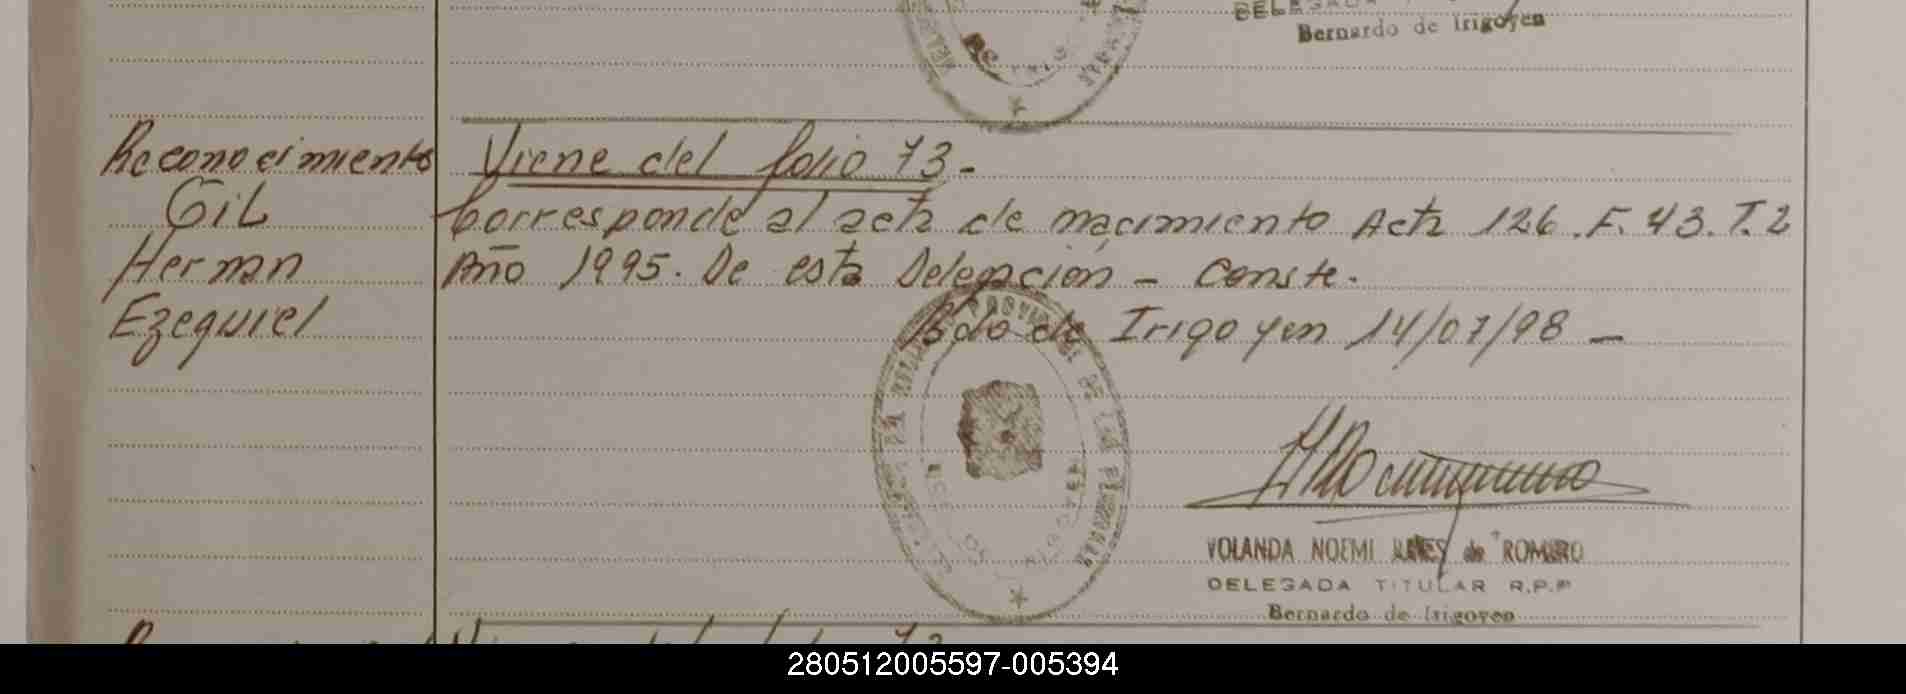 Bernardo de Irigoyen
Reconocimiento
Gil
Herman
Ezequiel
Viene del folio 73-
Corresponde al acta de nacimiento Acta 126.F.43.T.2
Año 1995. De esta Delegación - Conste.
Bdo de Irigoyen 14/07/98 -
YOLANDA NOEMI de ROMERO
DELEGADA TITULAR R.P.P
Bernardo de Irigoyen
280512005597-005394